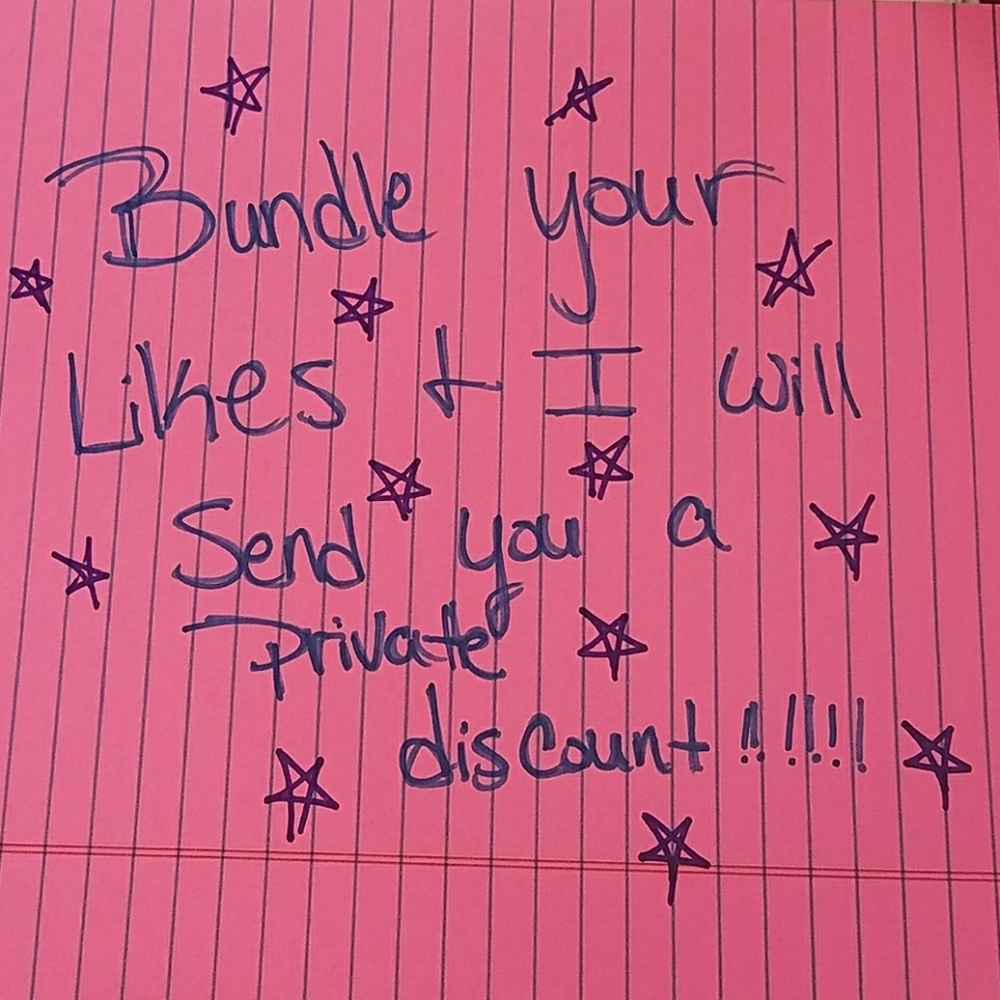 Bundle your
Likes & I will
Send you a
private
discount!!!!!!